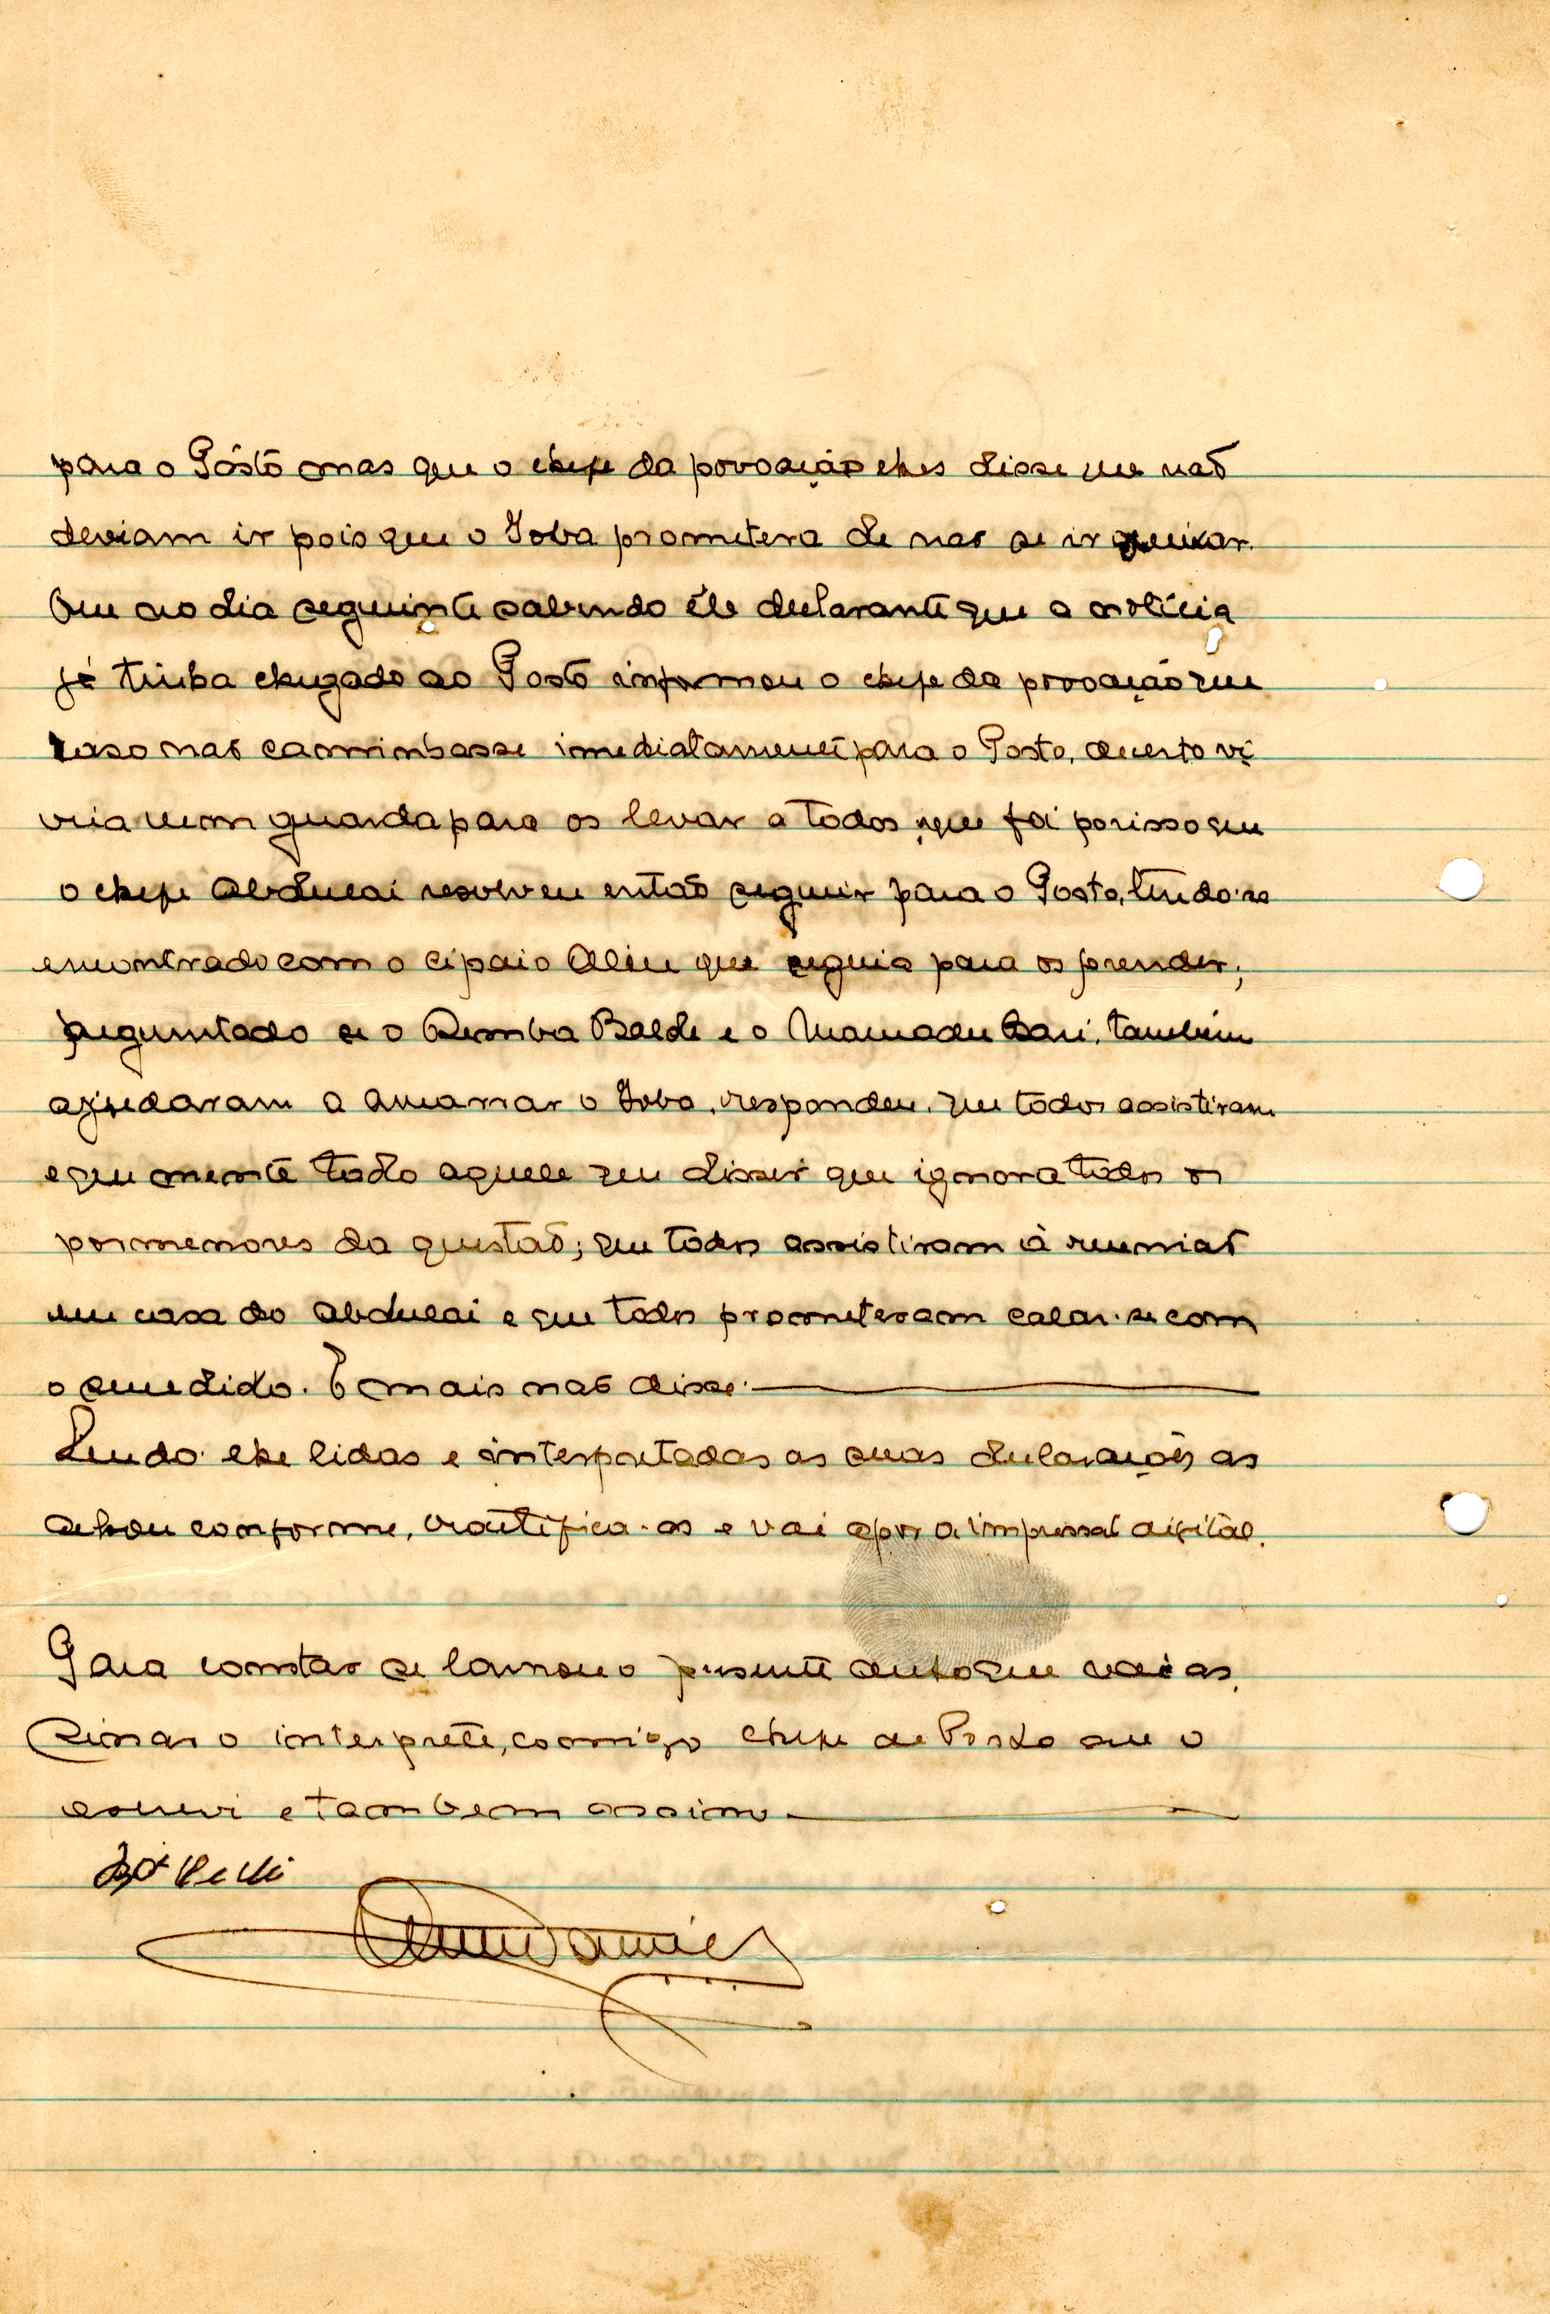 para o Pôsto mas que o chefe da povoação lhes disse que não
deviam ir pois que o Ioba prometera de não se ir queixar.
Que ao dia seguinte sabendo êle declarante que a notícia
já tinha chegado ao Posto informou o chefe da povoação que
caso não caminhasse imediatamente para o Posto, decerto vi
viria um guarda para os levar a todos, que foi porisso que
o chefe Abdulai resolveu então seguir para o Posto, tendo-se
encontrado com o cipaio Aliu que seguia para os prender;
preguntado se o Demba Balde e o Mamadu Bari, também
ajudaram a amarrar o Iobo, respondeu, que todos assistiram
e que mente todo aquele que disser que ignora todos os
pormenores da questão; que todos assistiram à reunião
em casa do Abdulai e que todos prometeram calar-se com
o sucedido. E mais não disse.
Sendo-lhe lidas e interpretadas as suas declarações as
achou conforme, ratifica-as e vai apor a impressão digital.
Para constar se lavrou o presente auto que vai as-
sinar o interprete, comigo chefe de Posto que o
escrevi e tambem assino